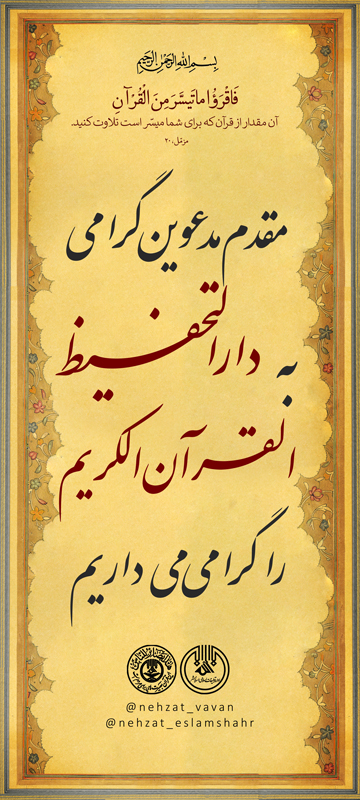 بسم الله الرحمن الرحیم
فَاقْرَؤُا ما تَیَسَّرَ مِنَ الْقُرْآنِ
آن مقدار از قرآن که برای شما میسّر است تلاوت کنید.
مزمّل، ۲۰
مقدم مدعوین گرامی
به دارالتحفیظ
القرآن الکریم
را گرامی می داریم
@nehzat_vavan
@nehzat_eslamshahr